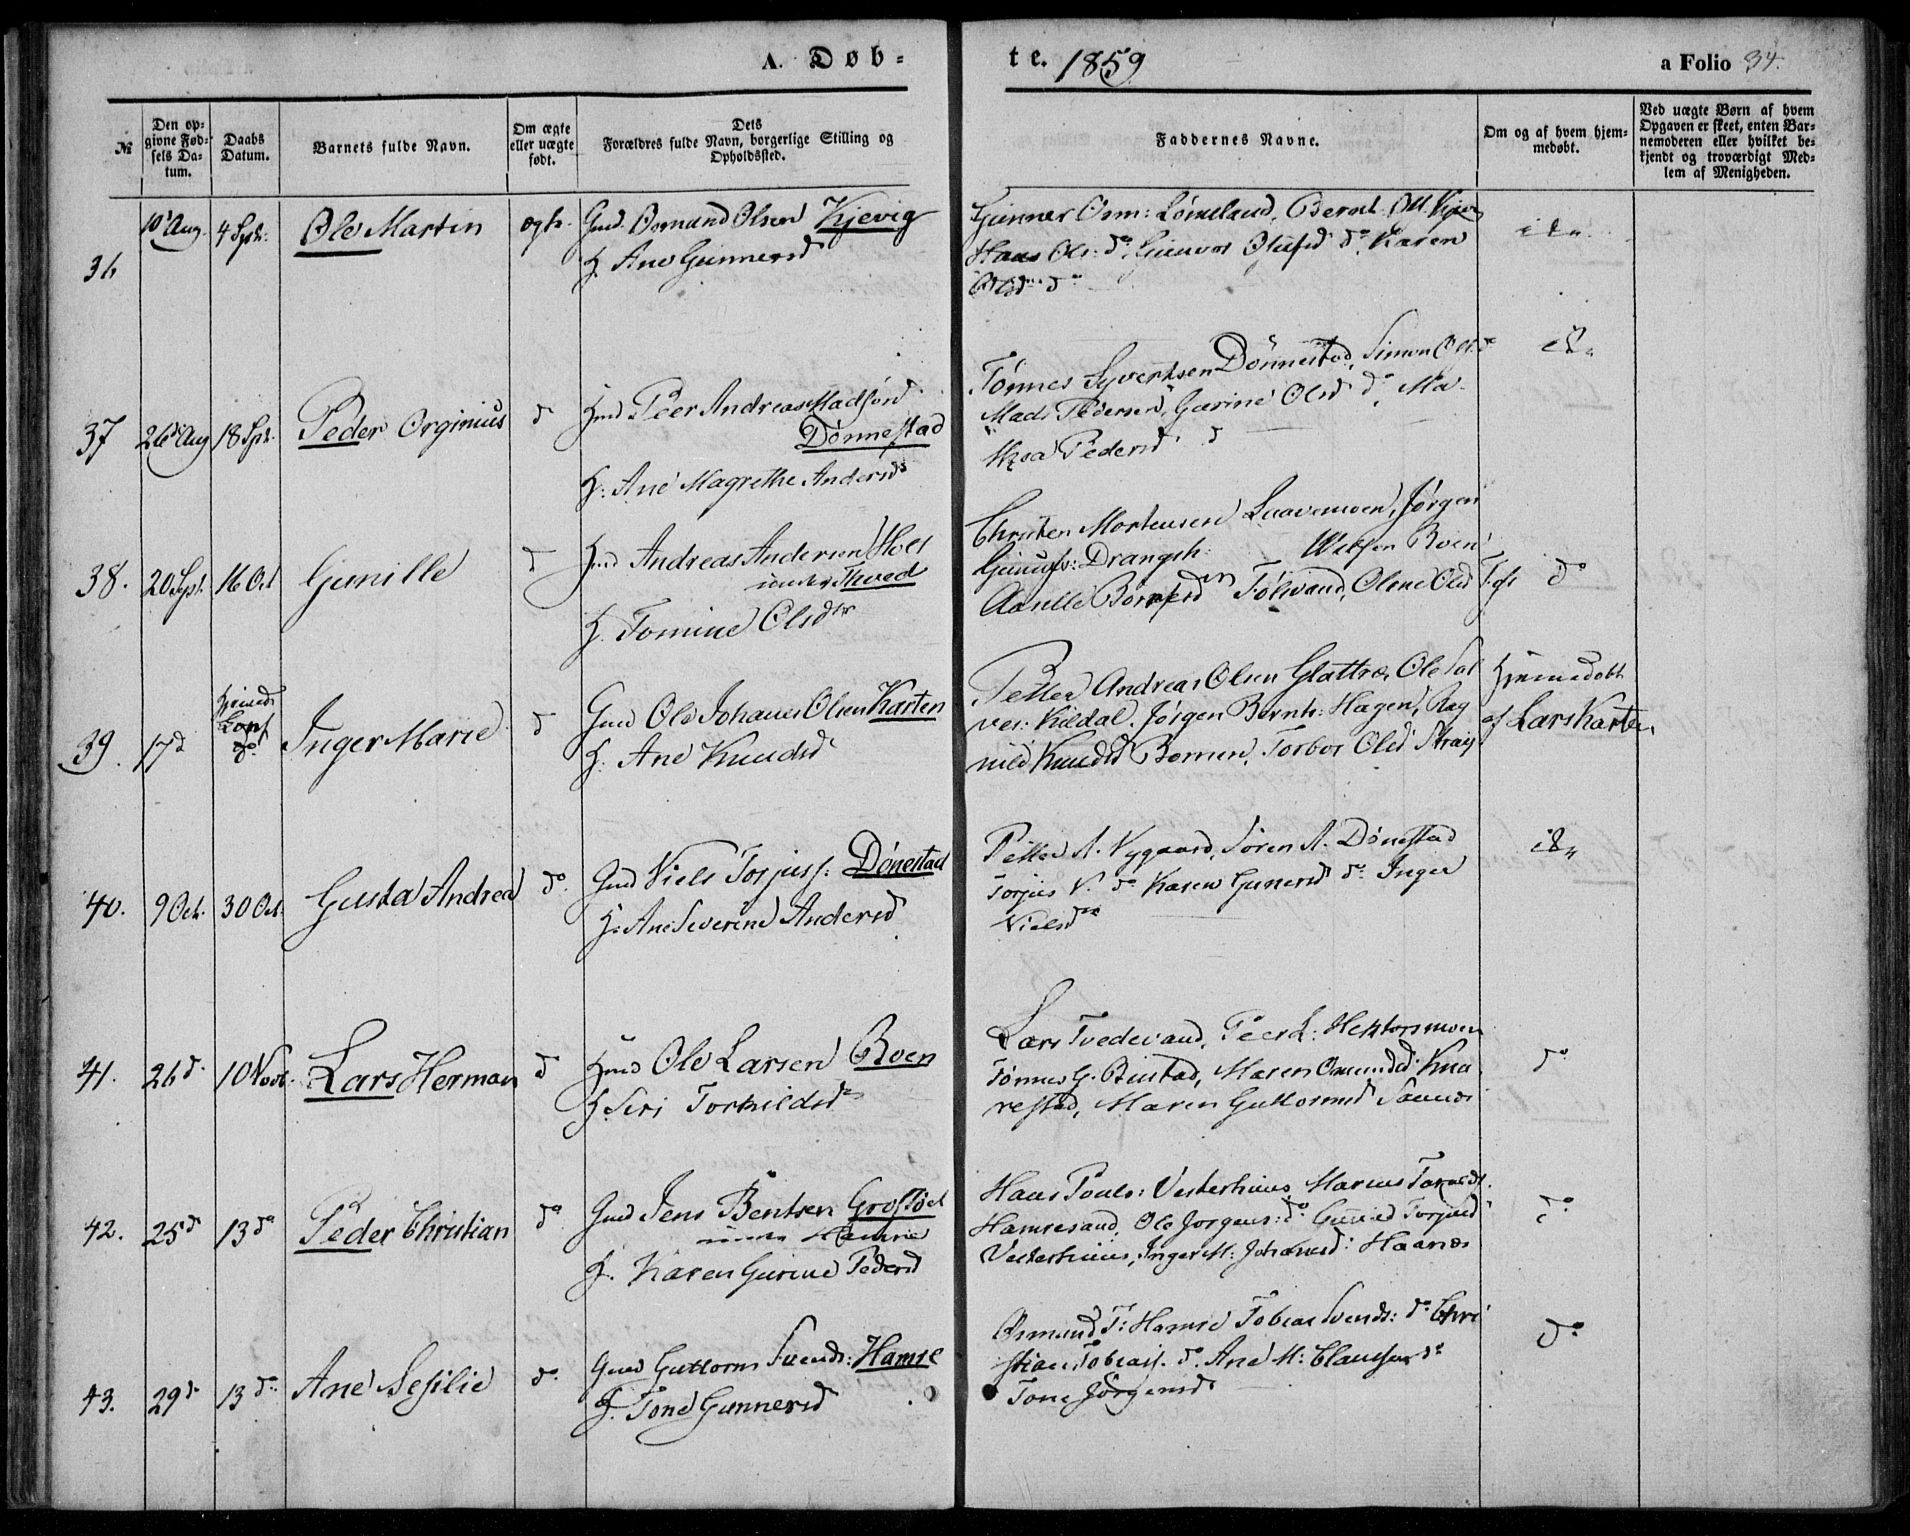 A. Døb-
te. 1859
a Folio 34.
№
Den op-
givne Fød-
sels Da-
tum.
Daabs
Datum.
Barnets fulde Navn.
Om ægte
eller uægte
født.
Dets
Forældres fulde Navn, borgerlige Stilling og
Opholdssted.
Faddernes Navne.
Om og af hvem hjem-
medøbt.
Ved uægte Børn af hvem
Opgaven er skeet, enten Bar-
nemoderen eller hvilket be-
kjendt og troværdigt Med-
lem af Menigheden.
36
10 Aug.
4 Sptr.
Ole Martin
ægte
Gmd. Osmund Olsen Kjevig
H. Ane Gunnersd
Gunner Osm: Lømeland, Bernt Ol. Kjev
Hans Ols: do, Gunvor Olufsd do Karen
Olsd do
37
26 Aug
18 Spt.
Peder Orginius
d
Hmd Peer Andreas Madsøn
Dønnestad
H. Ane Magrethe Andersd
Tønnes Syvertsen Dönnestad, Simon Ols. d
Mads Pedersen, Gurine Olsd do, Ma-
Pedersd d
38.
20 Spt.
16 Oct
Gunille
d
Hmd Andreas Andersen Holt
under Tved
H. Tomine Olsdtr
Christen Mortensen Laavemoen, Jørgen
Drangsh: Boen
Olene Olsd
do
39.
17 d
Hjemd
Conf
do
Inger Marie
d
Gmd Ole Johannes Olsen Karten
H. Ane Knudsd
Petter Andreas Olsen Glattre, Ole Sal
ves: Kildal. Jørgen Bernts: Hagen, Rag
nild Knudsd Bomen, Torbor Olsd Straij
Hjemmedøbt
af Lars Karten
40.
9 Oct.
30 Oct.
Gusta Andrea
do
Gmd Niels Torjuss: Dönestad
H: Ane Severine Andersd
Petter A. Nygaard, Søren A. Dønestad
Torjus N. do Karen Gunersd do Inger
Nielsd
41.
26 d.
10 Novb.
Lars Herman
d
Hmd Ole Larsen Boen
H. Siri Torkildsd
Lars Tvedevand, Peer L: Hektormoen
Tønnes G. Bustad, Maren Omundsd Kna
restad, Maren Guttormsd
do
42.
25 d
13 do
Peder Christian
do
Gmd Jens Bentsen Grostøl
under Hamre
H. Karen Gurine Pedersd
Hans Pouls: Vesterhuus, Marcus
Hamresand, Ole Jorgens: do Torjusd
Vesterhuus, Inger M: Johansd: Haanes
do
43.
29 d.
13 do
Ane Sesilie
do
Gmd Guttorm Svends: Hamre
H. Tone Gunnersd
Osmund T: Hamre Tobias Svends: do Chri
stian Tobiass. do. Ane M: Clausen do
Tone Jörgensd
do